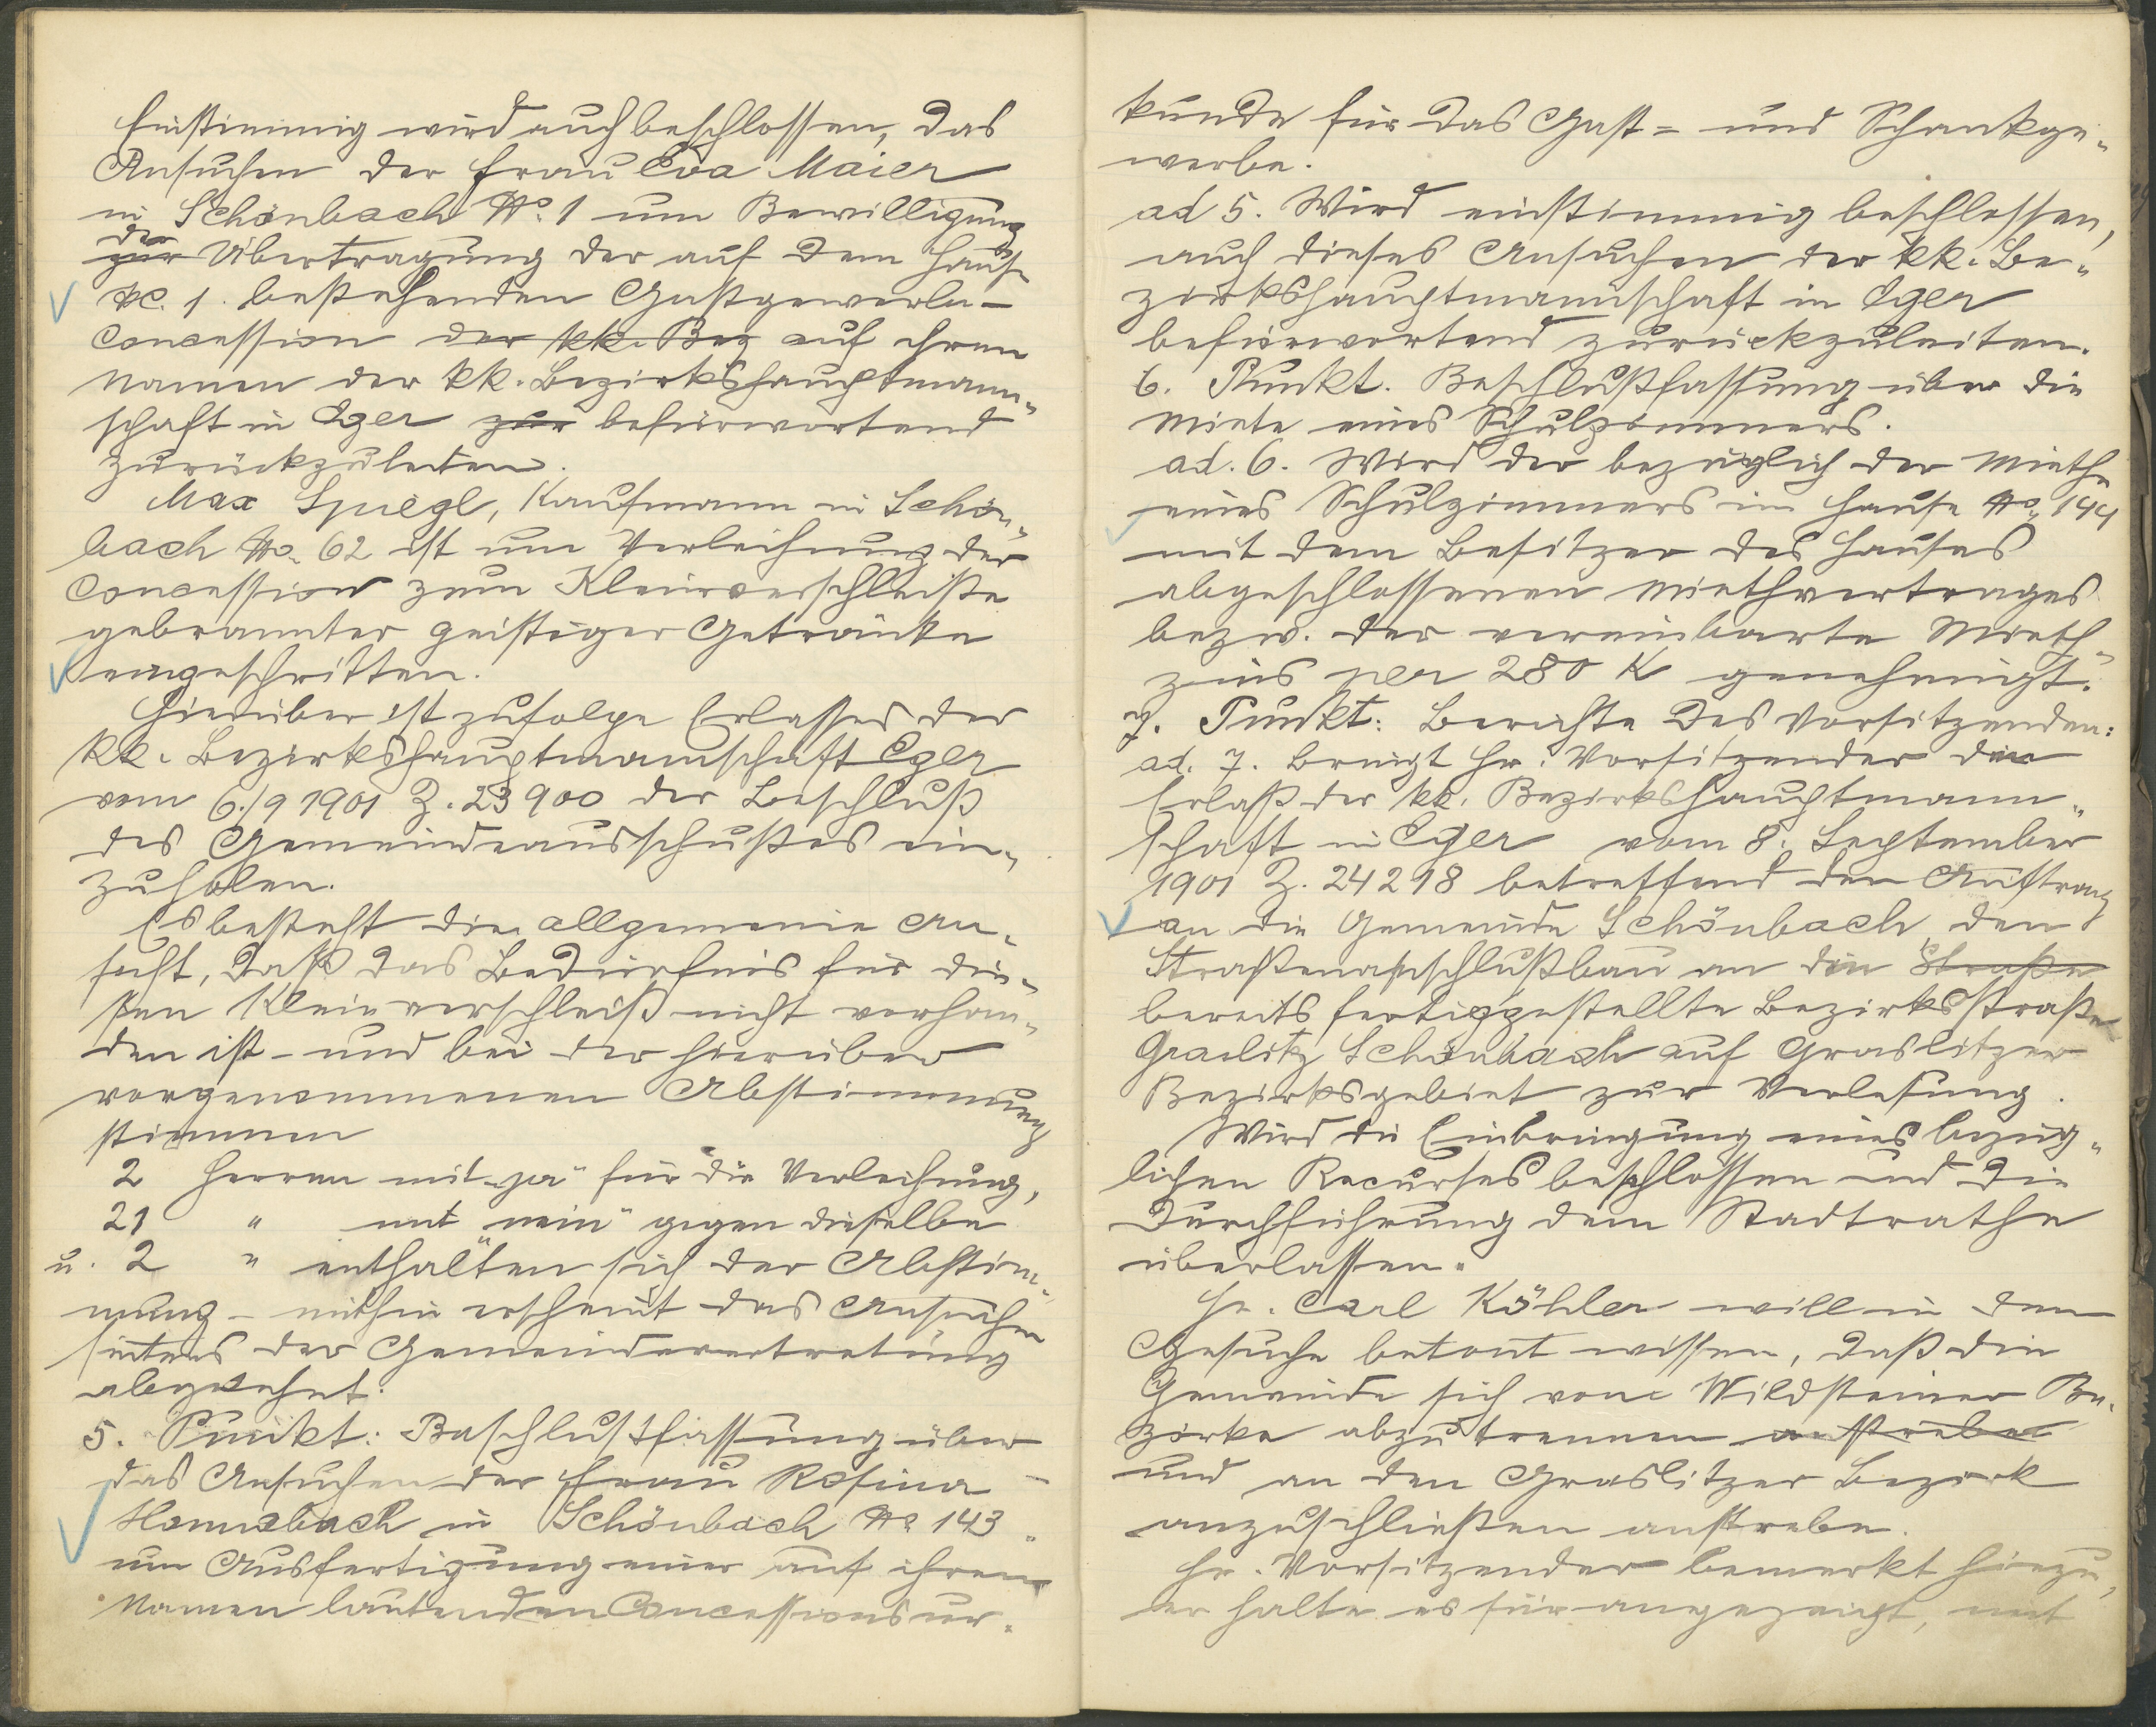 Einstimmig wird auch beschlossen, das
Ansuchen der Frau Eva Maier
in Schönbach No. 1 um Bewilligung
der
zur Übertragung der auf dem Hause
NC. 1. bestehenden Gastgewerbe-
concession der kk. Bez auf ihren
Namen der kk. Bezirkshauptmann-
schaft in Eger zur befürwortend
zurückzuleiten.
Max Spiegl, Kaufmann in Schön-
bach No. 62 ist um Verleihung der
Concession zum Kleinverschleiße
gebrannter geistiger Getränke
eingeschritten.
Hierüber ist zufolge Erlasses der
kk. Bezirkshauptmannschaft Eger
vom 6./9 1901 Z. 23900 der Beschluß
des Gemeindeausschußes ein-
zuholen.
Es besteht die allgemeine An-
sicht, daß das Bedürfnis für die-
sen Kleinverschleiß nicht vorhan-
den ist - und bei der hierüber
vorgenommenen Abstimmung
stimmen
2 Herren mit „ja“ für die Verleihung,
21 " mit „nein“ gegen dieselbe
u. 2 " enthalten sich der Abstim-
mung - mithin erscheint das Ansuchen
seitens der Gemeindevertretung
abgelehnt.
5. Punkt: Beschlußfassung über
das Ansuchen der Frau Rosina
in Schönbach No 143
um Ausfertigung einer auf ihren
Namen lautenden Concessionsur-
kunde für das Gast- und Schankge-
werbe.
ad 5. Wird einstimmig beschlossen,
auch dieses Ansuchen der kk. Be-
zirkshauptmannschaft in Eger
befürwortend zurückzuleiten.
6. Punkt. Beschlußfassung über die
Miete eines Schulzimmers.
ad. 6. Wird der bezüglich der Miethe
eines Schulzimmers im Hause No. 144
mit dem Besitzer des Hauses
abgeschlossenen Miethvertrages
bezw. der vereinbarte Mieth-
zins per 280 K genehmigt.
7. Punkt: Berichte des Vorsitzenden:
ad. 7. bringt Hr. Vorsitzender den
Erlaß der kk. Bezirkshauptmann-
schaft in Eger vom 8. September
1901 Z. 24298 betreffend den Auftrag
an die Gemeinde Schönbach den
Straßenanschlußbau an die Straße
bereits fertiggestellte Bezirksstraße
Graslitz Schönbach auf Graslitzer
Bezirksgebiet zur Verlesung.
Wird die Einbringung eines bezüg-
lichen Recurses beschlossen und die
Durchführung dem Stadtrathe
überlassen.
Hr. Carl Köhler will in dem
Gesuche betont wissen, daß die
Gemeinde sich vom Wildsteiner Be-
zirke abzutrennen anstrebe
und an den Graslitzer Bezirk
anzuschließen anstrebe.
Hr. Vorsitzender bemerkt hiezu,
er halte es für angezeigt, mit